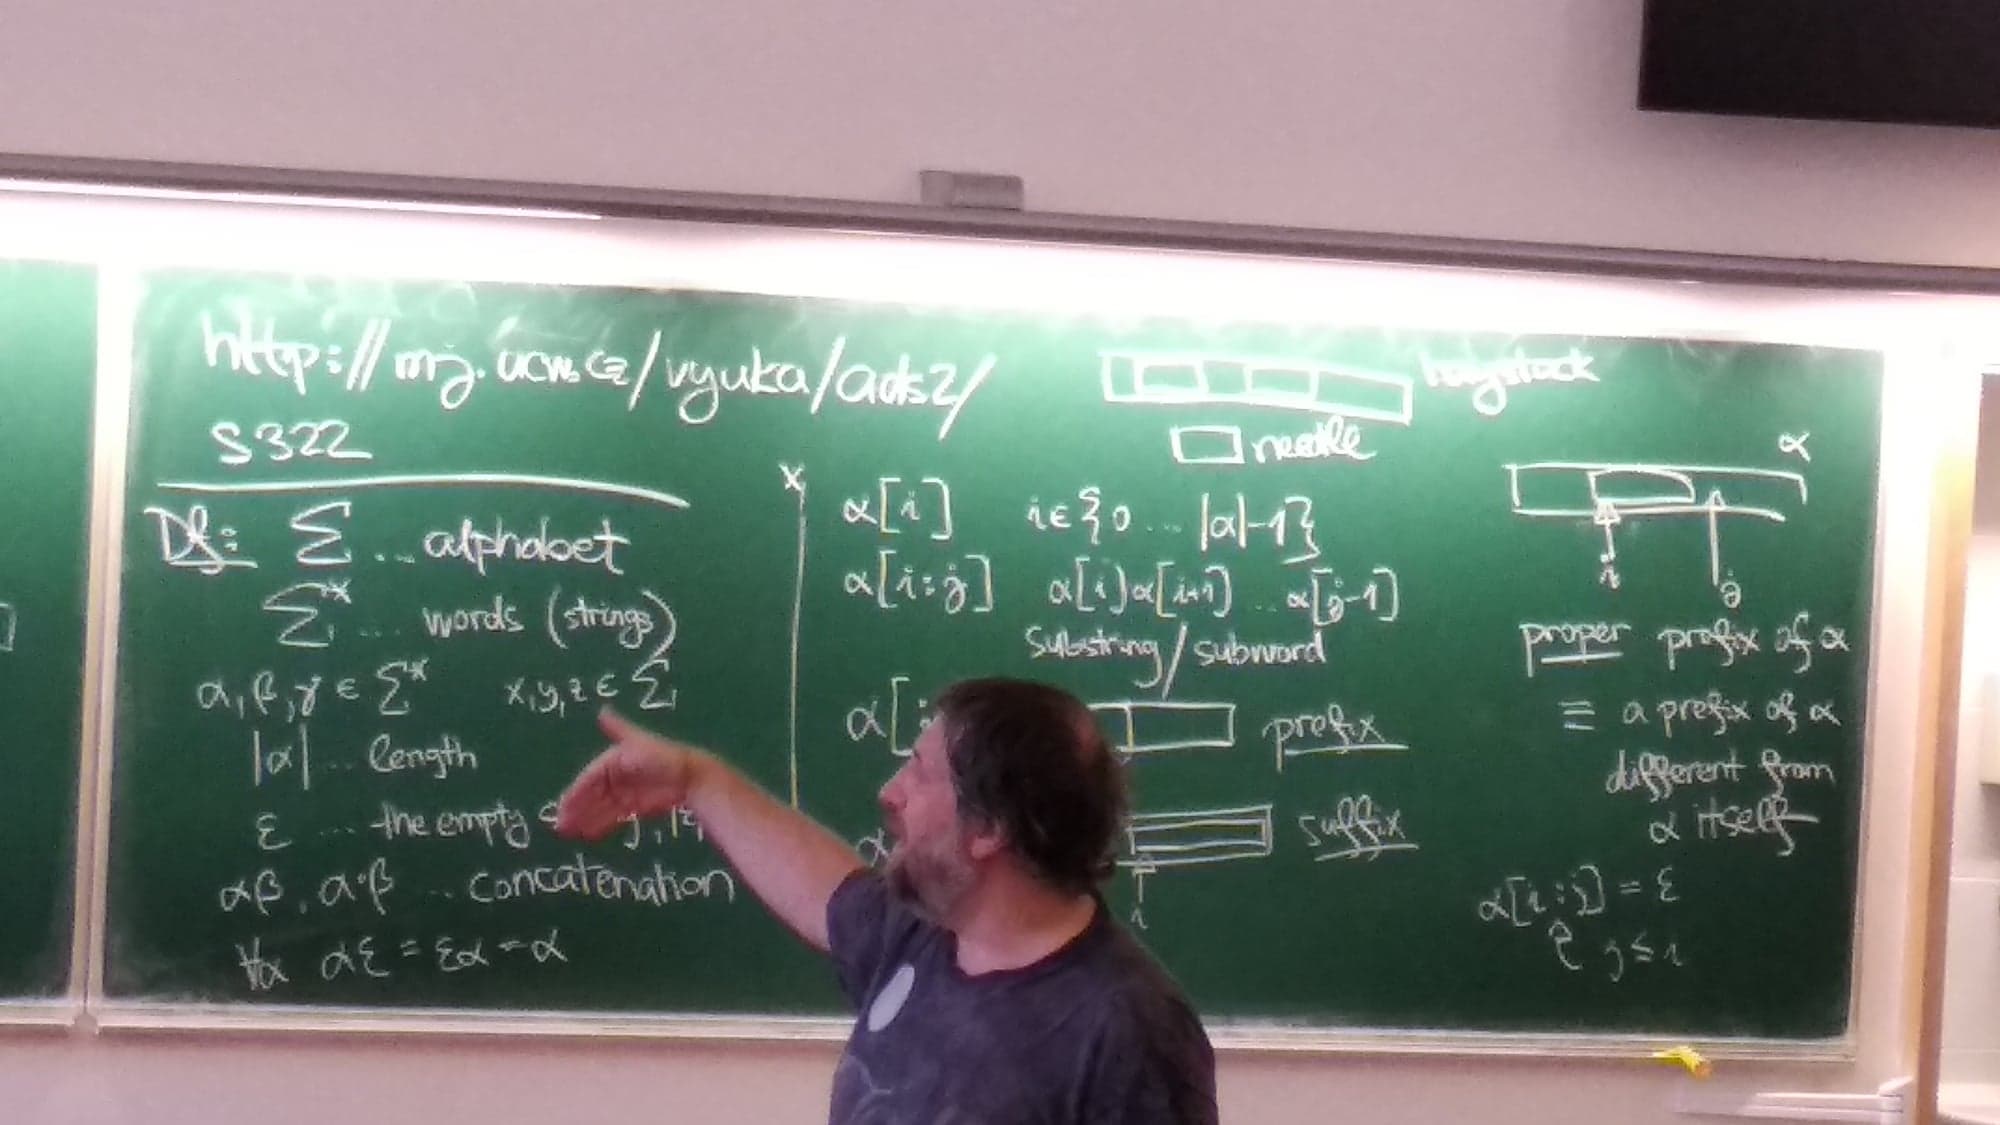 http://mj.ucw.cz/vyuka/ads2/
S322
Df: Σ ... alphabet
Σ* ... words (strings)
α, β, γ ∈ Σ* x, y, z ∈ Σ
|α| ... length
ε ... the empty
αβ, α·β ... concatenation
∀α αε = εα = α
haystack
needle
x
α[i] i∈{0 ... |α|-1}
α[i:j] α[i]α[i+1] ... α[j-1]
substring/subword
α[ prefix
α suffix
i
α
i
j
proper prefix of α
≡ a prefix of α
different from
α itself
α[i:j] = ε
j ≤ i